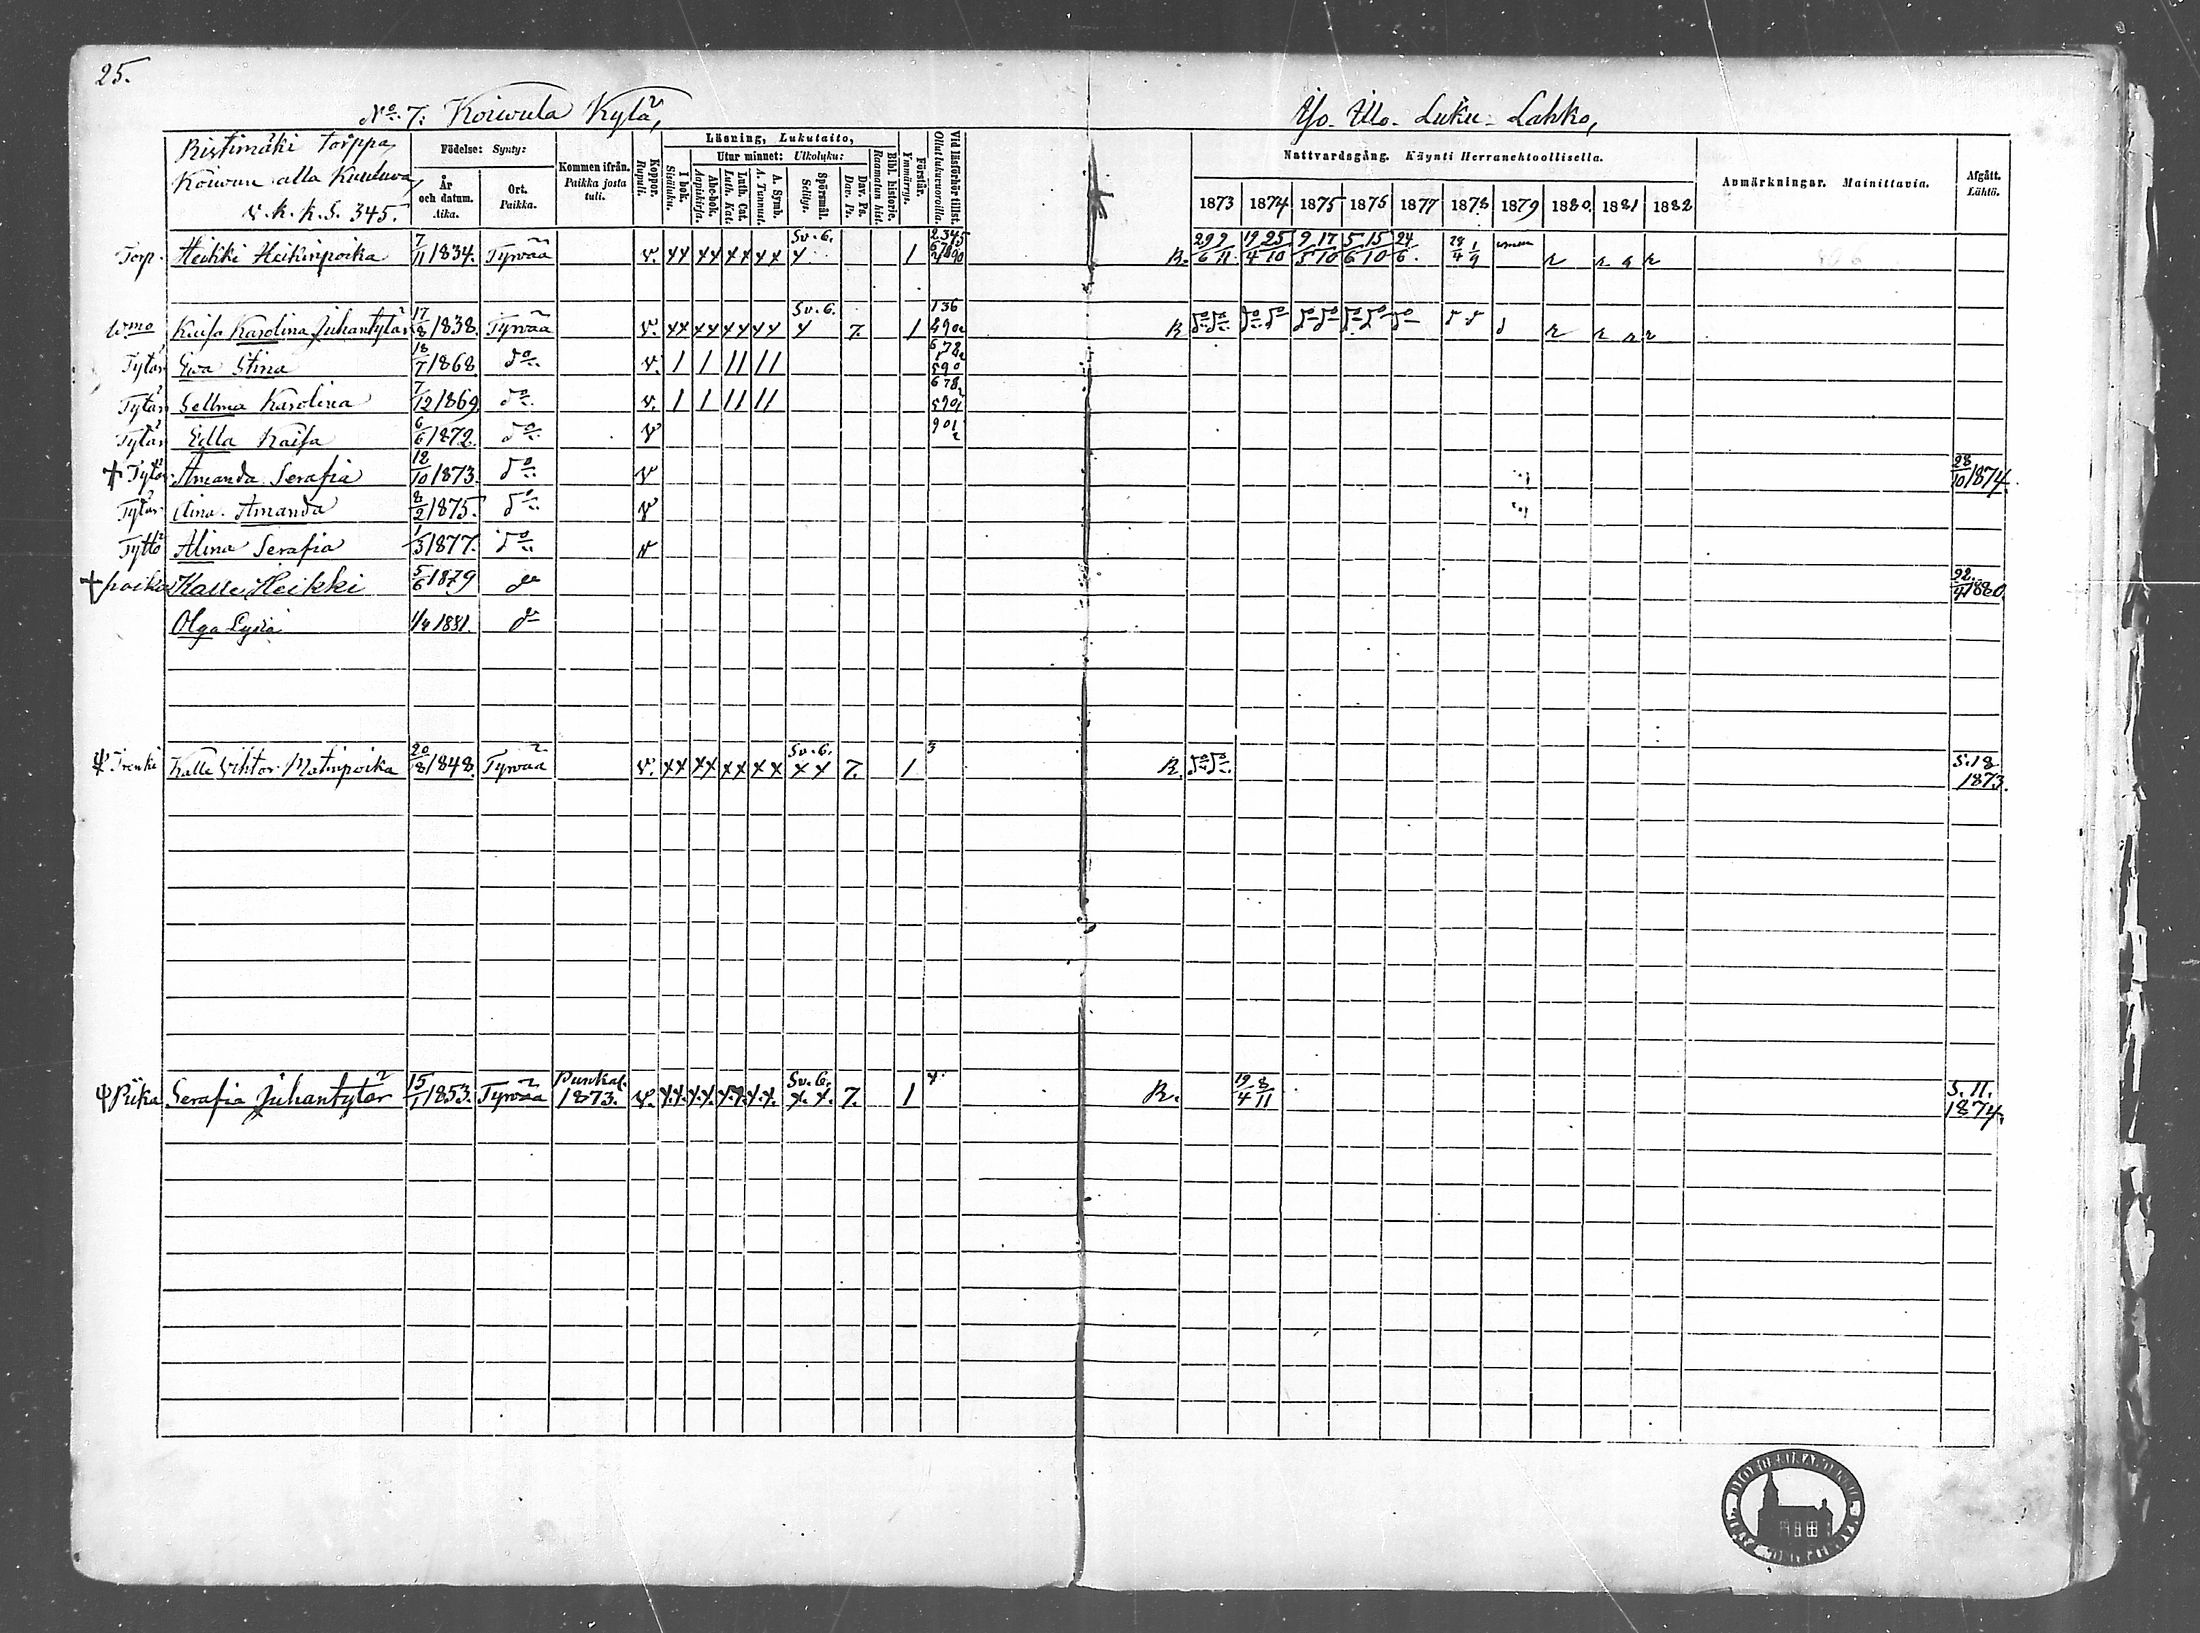 25.
No. 7. Koiwula Kylä,
Iso-Ulo-Luku-Lahko,
Ristimäki torppa
Koiwun alla Kuuluwa
v. k. k. S. 345.
Födelse: Synty:
År och datum. Aika.
Ort. Paikka.
Kommen ifrån. Paikka josta tuli.
Koppor. Rupuli.
Läsning, Lukutaito,
I bok. Sisäluku.
Utur minnet: Ulkoluku:
Abc-bok. Aapiskirja.
Luth. Cat. Luth. Kat.
A. Symb. A. Tunnust.
Spörsmål. Selitys.
Dav. Ps. Dav. Ps.
Bibl. historie. Raamatun hist.
Förstår. Ymmärrys.
Vid läsförhör tillst. Ollut lukuvuoroilla.
Nattvardsgång. Käynti Herranehtoollisella.
1873 1874 1875 1876 1877 1878 1879 1880 1881 1882
Anmärkningar. Mainittavia.
Afgått. Lähtö.
Torp. Heikki Heikinpoika 7/11 1834. Tyrwää v. xx xx xx xx Sv. 6. x 1 R. 29/6 9/11 19/4 25/10 9/5 17/10 5/6 15/10 24/6 28/4 1/9
wmo Kaisa Karolina Juhantytär 17/8 1838. Tyrwää v. xx xx xx xx Sv. 6. x 7. 1 136 R
Tytär Ewa Stina 18/7 1868. do v. 1 1 11 11
Tytär Sellma Karolina 7/12 1869 do v. 1 1 11 11 678
Tytär Edla Kaisa 6/6 1872. do v 901 2
+ Tytär Amanda Serafia 12/10 1873. do v 28/10 1874.
Tytär Iina Amanda 8/2 1875. do v
Tyttö Alina Serafia 1/3 1877. do v
+ poika Kalle Heikki 5/6 1879 do 22/4 1880.
Olga Lydia 1/4 1881. do
ψ Trenki Kalle Wihtor Matinpoika 20/8 1848. Tyrwää v. xx xx xx xx Sv. 6. xx 7. 1 3 R. do do S. 18 1873.
ψ Piika Serafia Juhantytär 15/1 1853. Tyrwää Punkal. 1873. v. x.x. x.x. x.x. x.x. Sv. 6. x. x. 7. 1 4. R. 19/4 8/11 S. 11. 1874.